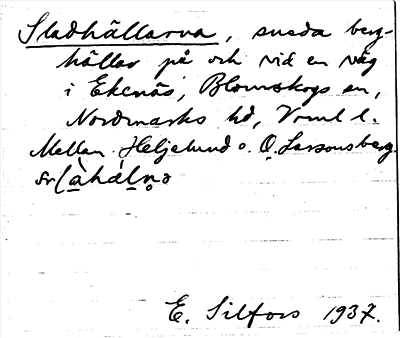 Sladhällarna, sneda berg-
hällar på och vid en väg
i Ekenäs, Blomskogs sn,
Nordmarks hd, Vrml l.
Mellan Heljelund o. Ö. Larsonsberg.
E. Silfors 1937.